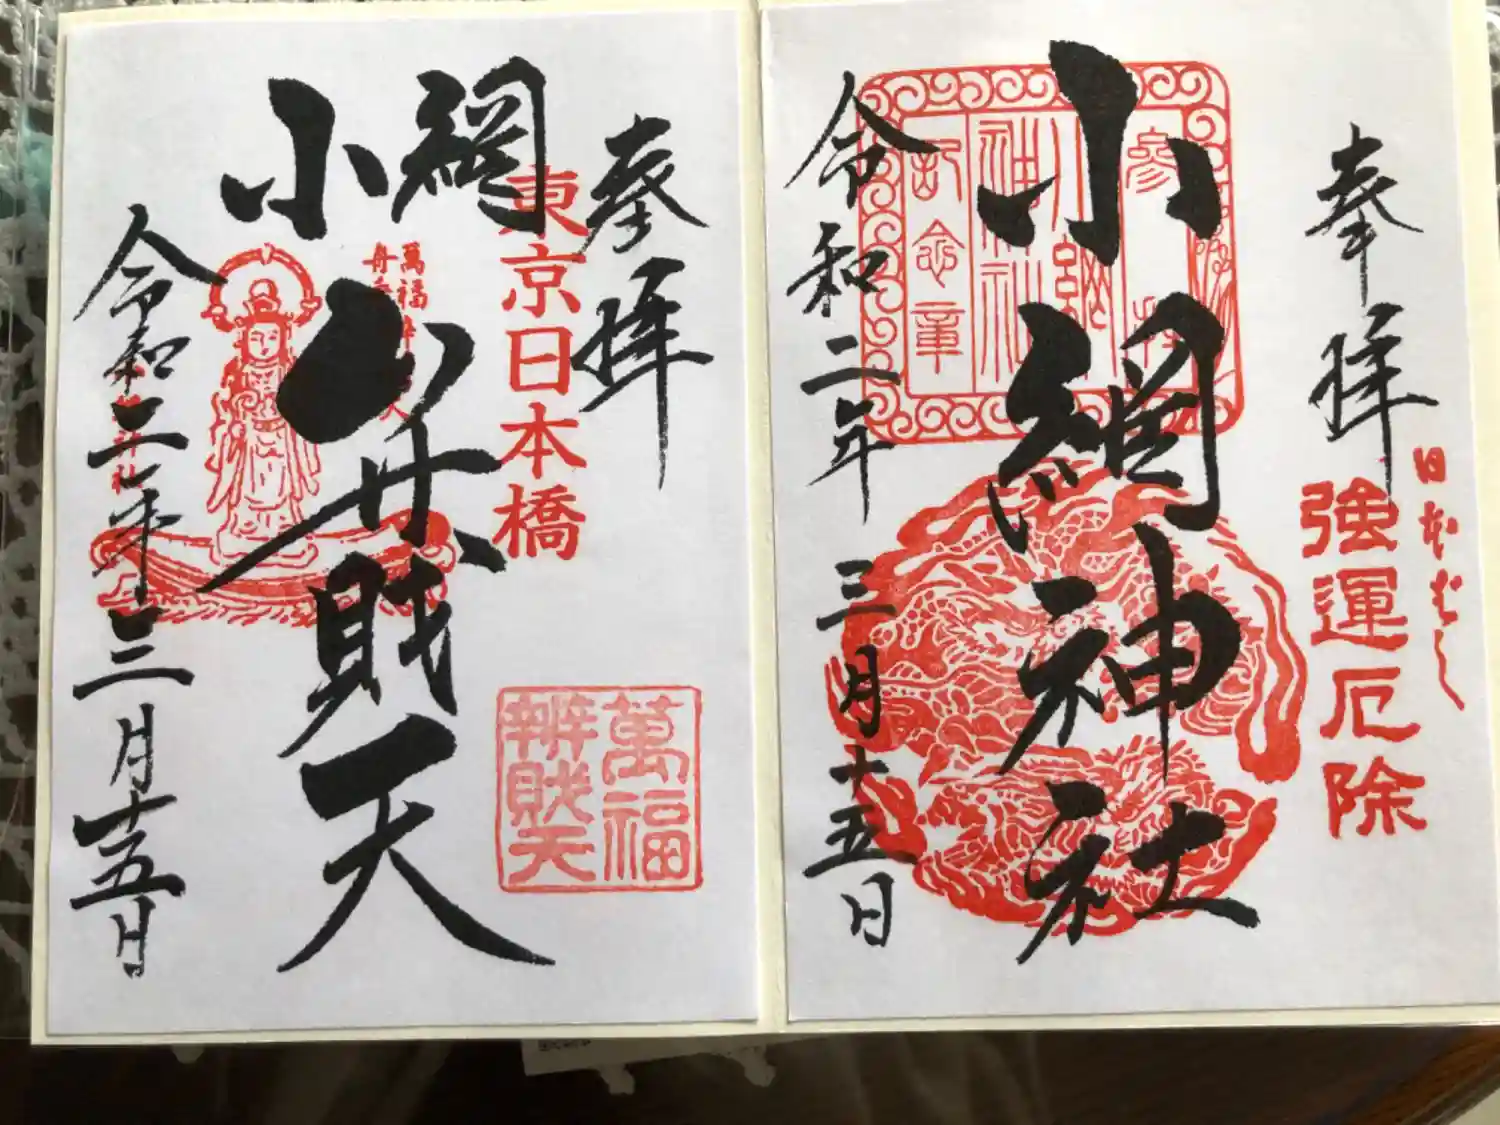 奉拝
日本ばし
強運厄除
小網神社
参拝
小網
神社
記念章
令和二年三月十五日
奉拝
東京日本橋
小網
弁財天
萬福
舟
萬福
辨財天
令和二年三月十五日